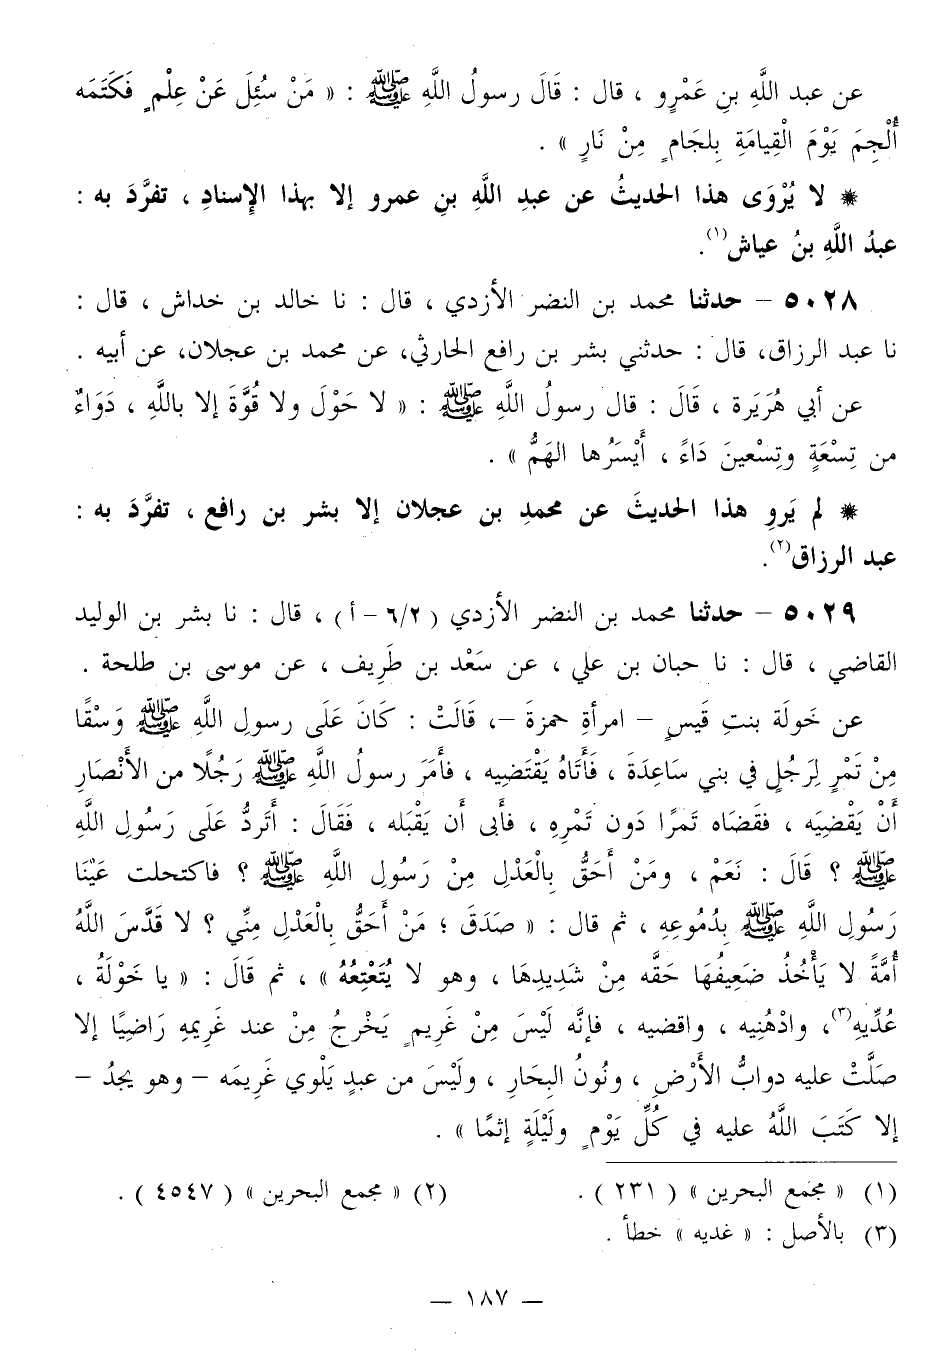 عن عبد اللَّهِ بنِ عَمْرٍو ، قال : قَالَ رسولُ اللَّهِ ﷺ : « مَنْ سُئِلَ عَنْ عِلْمٍ فَكَتَمَه
أُلْجِمَ يَوْمَ الْقِيامَةِ بِلجَامٍ مِنْ نَارٍ » .
* لا يُرْوَى هذا الحديثُ عن عبدِ اللَّهِ بنِ عمرو إلا بهذا الإسنادِ ، تفرَّدَ به :
عبدُ اللَّهِ بنُ عياش(١).
٥٠٢٨ – حدثنا محمد بن النضر الأزدي ، قال : نا خالد بن خداش ، قال :
نا عبد الرزاق، قال : حدثني بشر بن رافع الحارثي، عن محمد بن عجلان، عن أبيه .
عن أبي هُرَيَرة ، قَالَ : قال رسولُ اللَّهِ ﷺ : « لا حَوْلَ ولا قُوَّةَ إلا باللَّهِ ، دَوَاءٌ
من تِسْعَةٍ وتِسْعينَ دَاءً ، أَيْسَرُها الهَمُّ » .
* لم يَروِ هذا الحديثَ عن محمدِ بن عجلان إلا بشر بن رافع ، تفرَّدَ به :
عبد الرزاق(٢).
٥٠٢٩ – حدثنا محمد بن النضر الأزدي ( ٦/٢ – أ ) ، قال : نا بشر بن الوليد
القاضي ، قال : نا حبان بن علي ، عن سَعْد بن طَرِيف ، عن موسى بن طلحة .
عن خَولَة بنتِ قَيسٍ – امرأةِ حمزةَ –، قَالَتْ : كَانَ عَلَى رسولِ اللَّهِ ﷺ وَسْقًا
مِنْ تَمْرٍ لِرَجُلٍ في بني سَاعِدَةَ ، فَأَتَاهُ يَقْتَضِيه ، فأَمَرَ رسولُ اللَّهِ ﷺ رَجُلًا من الأَنْصَارِ
أَنْ يَقْضِيَه ، فقضَاه تَمرًا دَون تَمْرِهِ ، فأبى أن يَقْبَله ، فَقَالَ : أَتَردُّ عَلَى رَسُولِ اللَّهِ
ﷺ ؟ قَالَ : نَعَمْ ، ومَنْ أَحَقُّ بِالْعَدْلِ مِنْ رَسُولِ اللَّهِ ﷺ ؟ فاكتحلت عَيْنَا
رَسُولِ اللَّهِ ﷺ بِدُمُوعِهِ ، ثم قال : « صَدَقَ ؛ مَنْ أَحَقُّ بِالْعَدْلِ مِنِّي ؟ لا قَدَّسَ اللَّهُ
أُمَّةً لا يَأْخُذُ ضَعِيفُهَا حَقَّه مِنْ شَدِيدِهَا ، وهو لا يُتَعْتِعُهُ » ، ثم قَالَ : « يا خَوْلَةُ ،
عُدِّيهِ(٣)، وادْهُنِيه ، واقضيه ، فإنَّه لَيْسَ مِنْ غَرِيمٍ يَخْرجُ مِنْ عند غَرِيمِهِ رَاضِيًا إلا
صَلَّتْ عليه دوابُّ الأَرْضِ ، ونُونُ البِحَارِ ، ولَيْسَ من عبدٍ يَلْوي غَرِيمَه – وهو يجدُ –
إلا كَتَبَ اللَّهُ عليه في كُلِّ يَوْمٍ ولَيْلَةٍ إثمًا » .
(١) « مجمع البحرين » ( ٢٣١ ) . (٢) « مجمع البحرين » ( ٤٥٤٧ ) .
(٣) بالأصل : « غديه » خطأ .
– ١٨٧ –